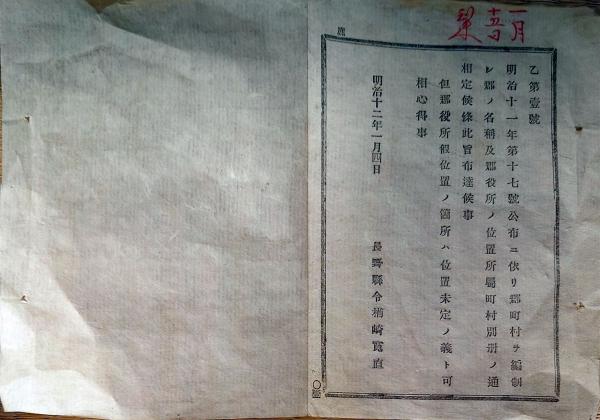 一月
十五日
乙第壹號
明治十一年第十七號公布ニ依リ郡町村ヲ編制
シ郡ノ名稱及郡役所ノ位置所屬町村別册ノ通
相定候條此旨布達候事
但郡役所假位置ノ箇所ハ位置未定ノ義ト可
相心得事
明治十二年一月四日
長野縣令楢崎寛直
〇壹